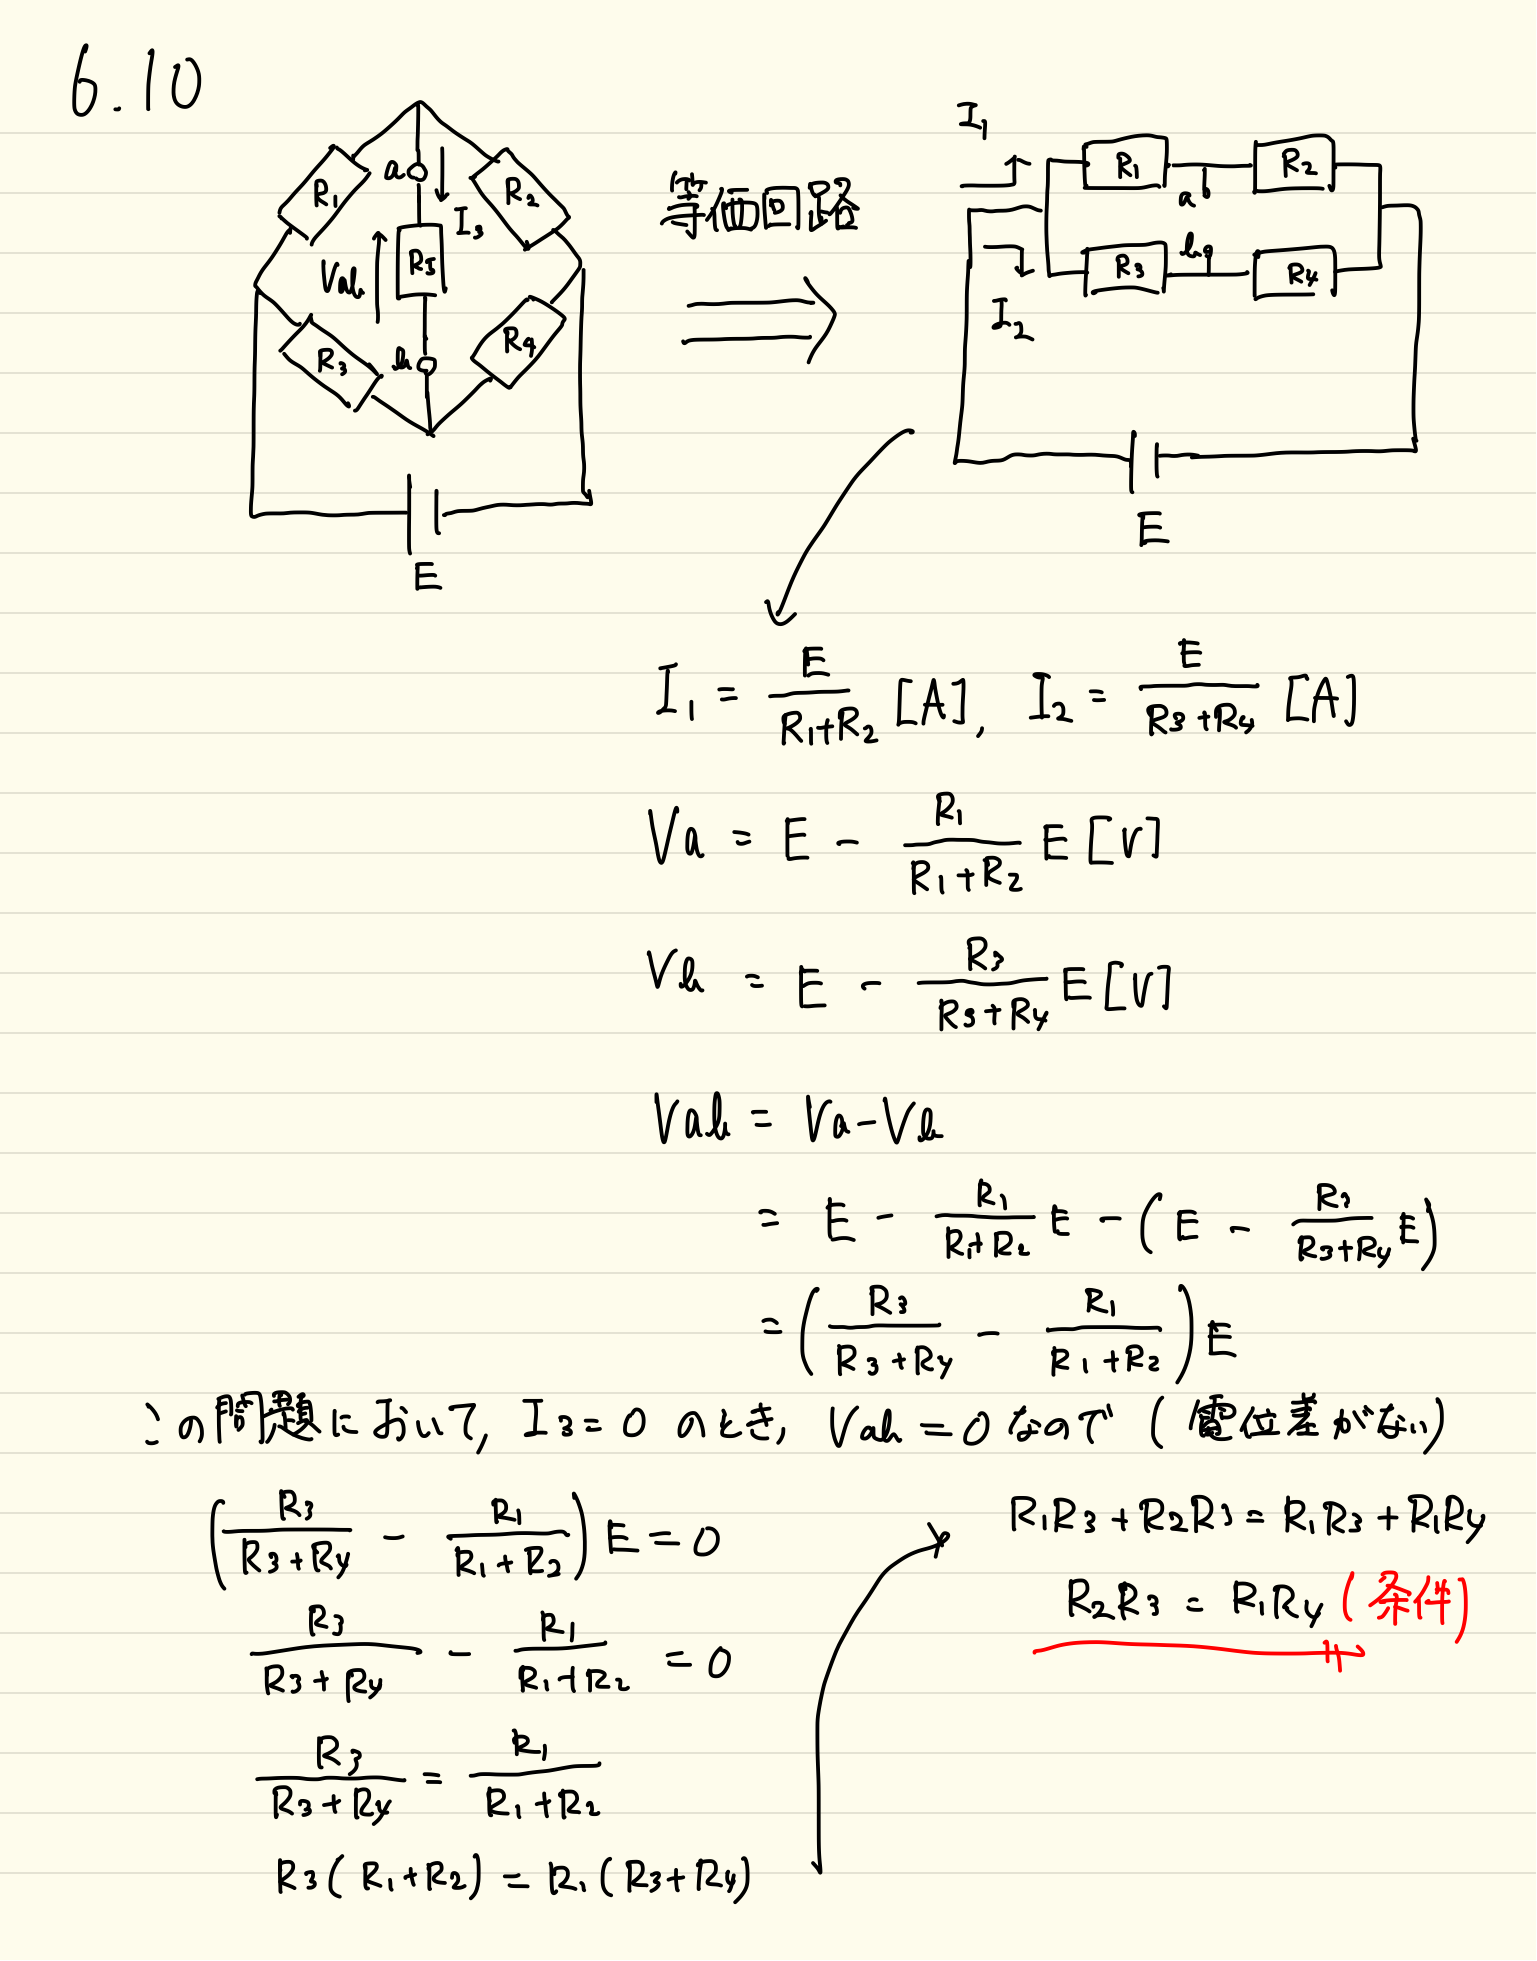 6.10
R1
a
I3
R2
Vab
R5
R3
b
R4
E
等価回路
I1
R1
R2
a
b
R3
R4
I2
E
I1 = E/(R1+R2) [A], I2 = E/(R3+R4) [A]
Va = E - R1/(R1+R2) E [V]
Vb = E - R3/(R3+R4) E [V]
Vab = Va - Vb
= E - R1/(R1+R2) E - (E - R3/(R3+R4) E)
= (R3/(R3+R4) - R1/(R1+R2)) E
この問題において, I3 = 0 のとき, Vab = 0 なので (電位差がない)
(R3/(R3+R4) - R1/(R1+R2)) E = 0
R3/(R3+R4) - R1/(R1+R2) = 0
R3/(R3+R4) = R1/(R1+R2)
R3(R1+R2) = R1(R3+R4)
R1R3 + R2R3 = R1R3 + R1R4
R2R3 = R1R4 (条件)